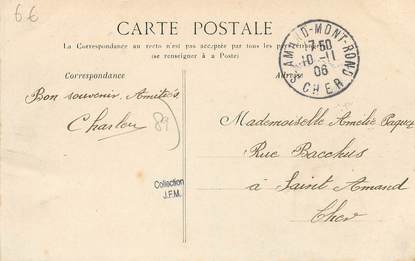 66
CARTE POSTALE
La Correspondance au recto n'est pas acceptée par tous les pays étrangers
(se renseigner à la Poste)
Correspondance
Adresse
St AMAND-MONT-ROND
17 50
10 -11
06
CHER
Bon souvenir. Amitiés
Charlou
89
Collection
J.F.M.
Mademoiselle Amélie
Rue Bacchus
à Saint Amand
Cher